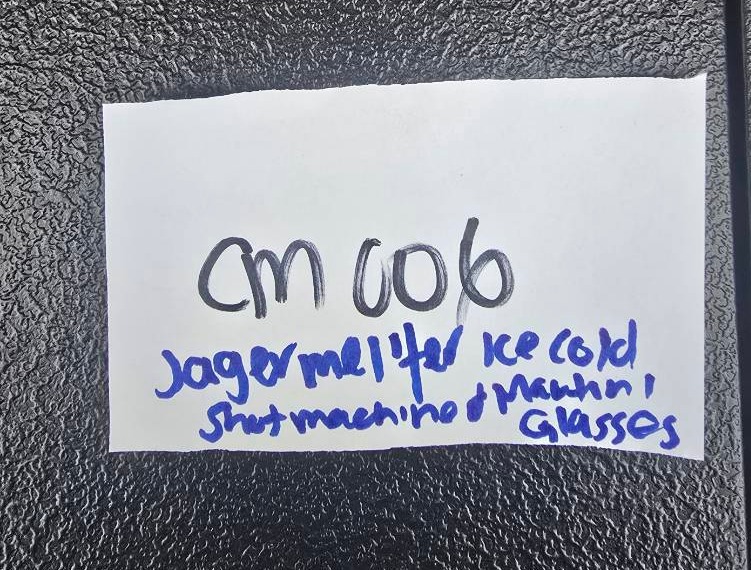 CM 006
Jagermeifer Ice cold
Shot machine & Martini
Glasses